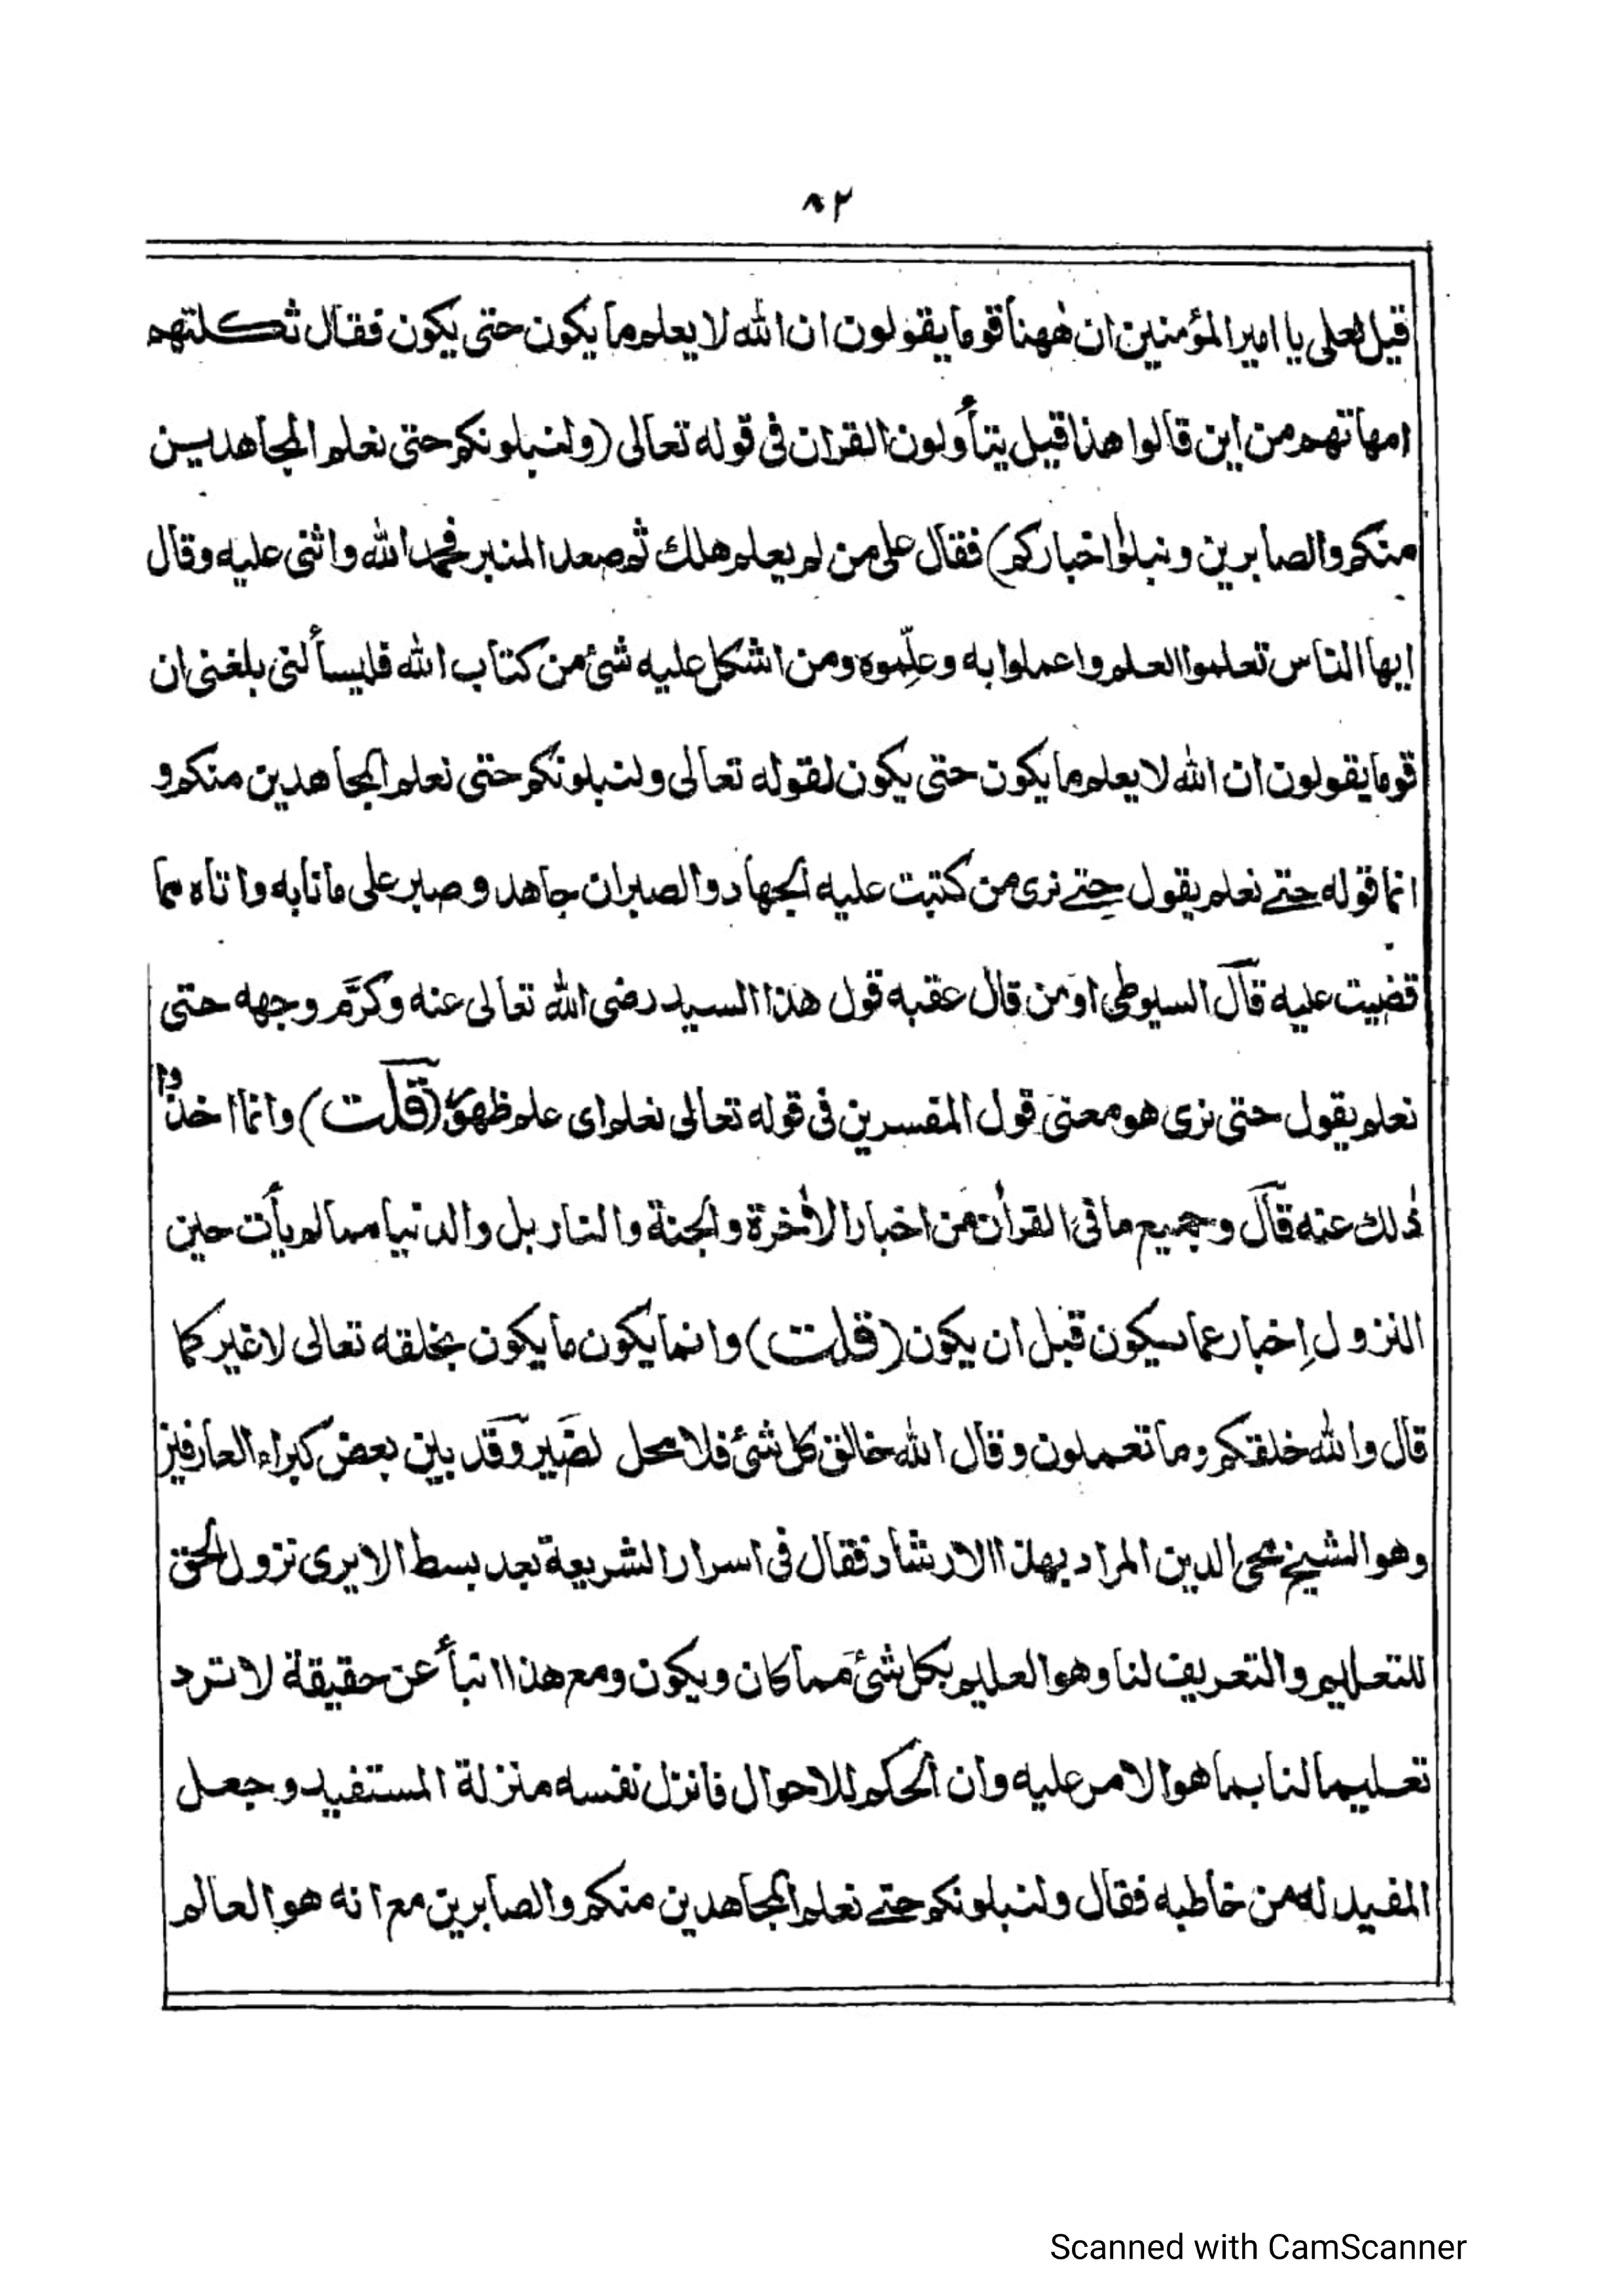 ٨٢
قيل لعلى يا امير المؤمنين ان ههنا قوما يقولون ان الله لا يعلم ما يكون حتى يكون فقال ثكلتهم
امهاتهم من اين قالوا هذا قيل يتأولون القران فى قوله تعالى (ولنبلونكم حتى نعلم المجاهدين
منكم والصابرين ونبلوا اخباركم) فقال على من لم يعلم هلك ثم صعد المنبر فحمد الله واثنى عليه وقال
ايها الناس تعلموا العلم واعملوا به وعلّموه ومن اشكل عليه شئ من كتاب الله فليسألنى بلغنى ان
قوما يقولون ان الله لا يعلم ما يكون حتى يكون لقوله تعالى ولنبلونكم حتى نعلم المجاهدين منكم و
انما قوله حتے نعلم يقول حتے نرى من كتبت عليه الجهاد والصبر ان جاهد وصبر على ما نابه واتاه مما
قضيت عليه قال السيوطى او من قال عقبه قول هذا السيد رضى الله تعالى عنه وكرّم وجهه حتى
نعلم يقول حتى نرى هو معنى قول المفسرين فى قوله تعالى نعلم اى علم ظهور (قلت) وانما اخذوا
ذٰلك عنه قال وجميع ما فى القرأن من اخبار الاٰخرة والجنة والنار بل والدنيا مما لم يأت حين
النزول إخبار عما سيكون قبل ان يكون (قلت) وانما يكون ما يكون بخلقه تعالى لا غير كما
قال والله خلقكم وما تعملون وقال الله خالق كل شئ فلا محل لضَير وقد بين بعض كبراء العارفين
وهو الشيخ محى الدين المراد بهذا الارشاد فقال فى اسرار الشريعة بعد بسط الا يرى نزول الحق
للتعليم والتعريف لنا وهو العليم بكل شئ مما كان ويكون ومع هذا انبأ عن حقيقة لا ترد
تعليما لنا بما هو الامر عليه وان الحكم للاحوال فانزل نفسه منزلة المستفيد وجعل
المفيد له من خاطبه فقال ولنبلونكم حتے نعلم المجاهدين منكم والصابرين مع انه هو العالم
Scanned with CamScanner